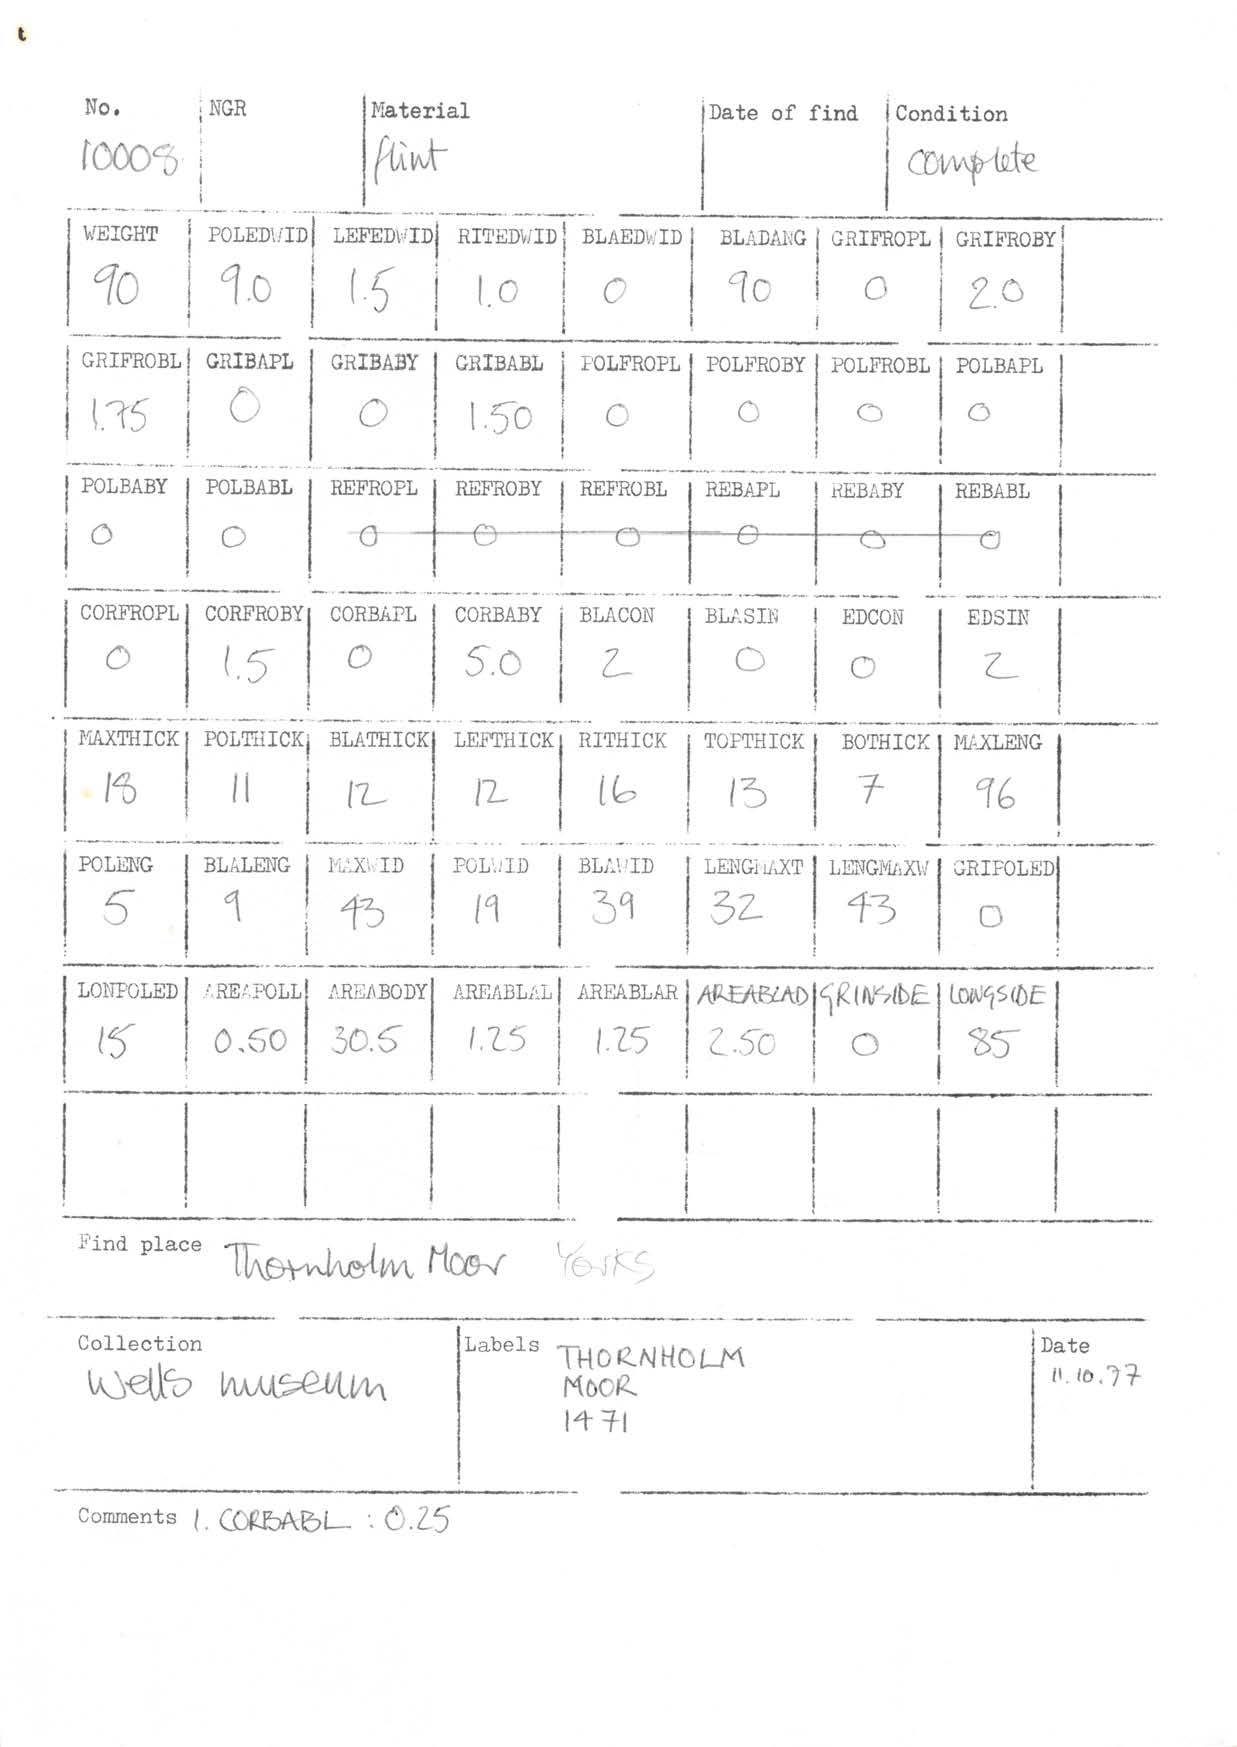 t
No. NGR Material Date of find Condition
10008 flint complete
WEIGHT POLEDWID LEFEDWID RITEDWID BLAEDWID BLADANG GRIFROPL GRIFROBY
90 9.0 1.5 1.0 0 90 0 2.0
GRIFROBL GRIBAPL GRIBABY GRIBABL POLFROPL POLFROBY POLFROBL POLBAPL
1.75 0 0 1.50 0 0 0 0
POLBABY POLBABL REFROPL REFROBY REFROBL REBAPL REBABY REBABL
0 0 0 0 0 0 0 0
CORFROPL CORFROBY CORBAPL CORBABY BLACON BLASIN EDCON EDSIN
0 1.5 0 5.0 2 0 0 2
MAXTHICK POLTHICK BLATHICK LEFTHICK RITHICK TOPTHICK BOTHICK MAXLENG
18 11 12 12 16 13 7 96
POLENG BLALENG MAXWID POLWID BLAWID LENGMAXT LENGMAXW GRIPOLED
5 9 43 19 39 32 43 0
LONPOLED AREAPOLL AREABODY AREABLAL AREABLAR AREABLAD GRINSIDE LONGSIDE
15 0.50 30.5 1.25 1.25 2.50 0 85
Find place Thornholm Moor Yorks
Collection Labels THORNHOLM Date
Wells museum MOOR 11.10.77
1471
Comments 1. CORBABL : 0.25